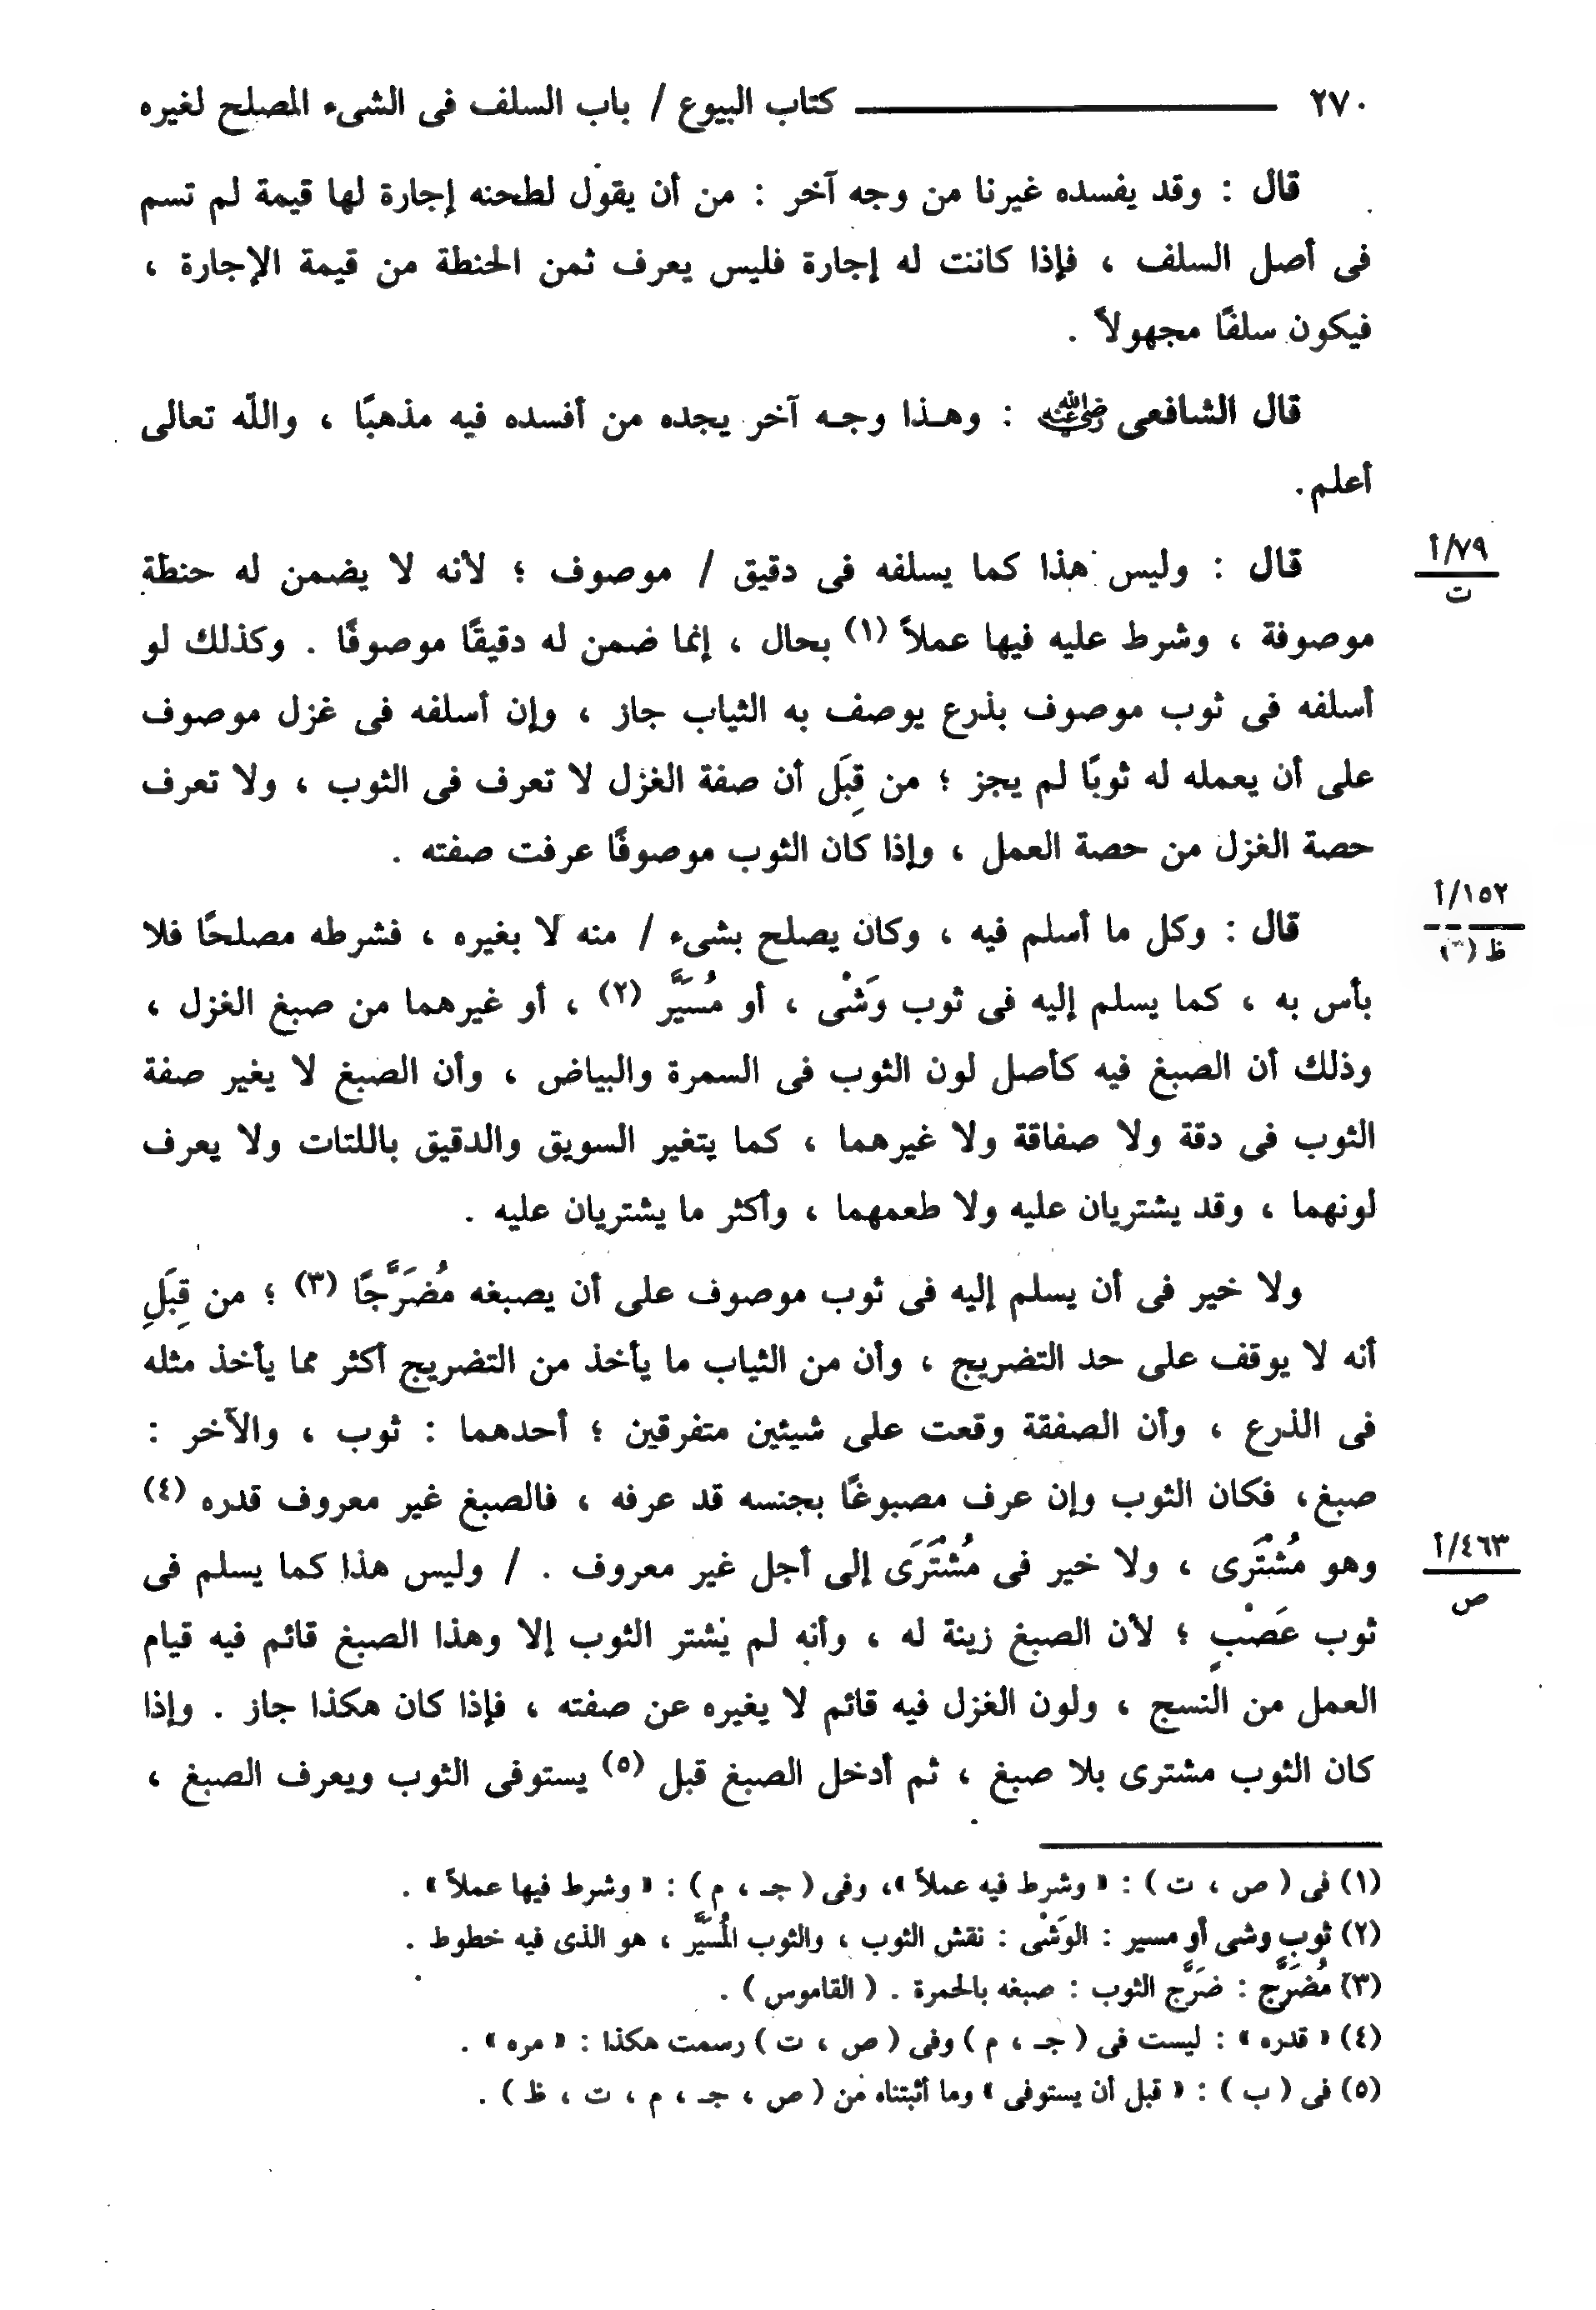 ٢٧٠ كتاب البيوع / باب السلف فى الشىء المصلح لغيره
قال : وقد يفسده غيرنا من وجه آخر : من أن يقول لطحنه إجارة لها قيمة لم تسم
فى أصل السلف ، فإذا كانت له إجارة فليس يعرف ثمن الحنطة من قيمة الإجارة ،
فيكون سلفًا مجهولاً .
قال الشافعى رضي الله عنه : وهـذا وجـه آخر يجده من أفسده فيه مذهبًا ، واللّه تعالى
أعلم.
قال : وليس هذا كما يسلفه فى دقيق / موصوف ؛ لأنه لا يضمن له حنطة
٧٩/أ
ت
موصوفة ، وشرط عليه فيها عملاً (١) بحال ، إنما ضمن له دقيقًا موصوفًا . وكذلك لو
أسلفه فى ثوب موصوف بذرع يوصف به الثياب جاز ، وإن أسلفه فى غزل موصوف
على أن يعمله له ثوبًا لم يجز ؛ من قِبَل أن صفة الغزل لا تعرف فى الثوب ، ولا تعرف
حصة الغزل من حصة العمل ، وإذا كان الثوب موصوفًا عرفت صفته .
قال : وكل ما أسلم فيه ، وكان يصلح بشىء / منه لا بغيره ، فشرطه مصلحًا فلا
١٥٢/أ
ظ (٣)
بأس به ، كما يسلم إليه فى ثوب وَشْى ، أو مُسَيَّر (٢) ، أو غيرهما من صبغ الغزل ،
وذلك أن الصبغ فيه كأصل لون الثوب فى السمرة والبياض ، وأن الصبغ لا يغير صفة
الثوب فى دقة ولا صفاقة ولا غيرهما ، كما يتغير السويق والدقيق باللتات ولا يعرف
لونهما ، وقد يشتريان عليه ولا طعمهما ، وأكثر ما يشتريان عليه .
ولا خير فى أن يسلم إليه فى ثوب موصوف على أن يصبغه مُضَرَّجًا (٣) ؛ من قِبَلِ
أنه لا يوقف على حد التضريج ، وأن من الثياب ما يأخذ من التضريج أكثر مما يأخذ مثله
فى الذرع ، وأن الصفقة وقعت على شيئين متفرقين ؛ أحدهما : ثوب ، والآخر :
صبغ، فكان الثوب وإن عرف مصبوغًا بجنسه قد عرفه ، فالصبغ غير معروف قدره (٤)
وهو مُشْتَرى ، ولا خير فى مُشْتَرَى إلى أجل غير معروف . / وليس هذا كما يسلم فى
٤٦٣/أ
ص
ثوب عَصْبٍ ؛ لأن الصبغ زينة له ، وأنه لم يشتر الثوب إلا وهذا الصبغ قائم فيه قيام
العمل من النسج ، ولون الغزل فيه قائم لا يغيره عن صفته ، فإذا كان هكذا جاز . وإذا
كان الثوب مشترى بلا صبغ ، ثم أدخل الصبغ قبل (٥) يستوفى الثوب ويعرف الصبغ ،
(١) فى ( ص ، ت ) : « وشرط فيه عملاً »، وفى ( جـ ، م ) : « وشرط فيها عملاً » .
(٢) ثوب وشى أو مسير : الوَشْى : نقش الثوب ، والثوب المُسَيَّر ، هو الذى فيه خطوط .
(٣) مُضَرَّج : ضَرَّج الثوب : صبغه بالحمرة . ( القاموس ) .
(٤) « قدره » : ليست فى ( جـ ، م ) وفى ( ص ، ت ) رسمت هكذا : « مره » .
(٥) فى ( ب ) : « قبل أن يستوفى » وما أثبتناه من ( ص ، جـ ، م ، ت ، ظ ) .